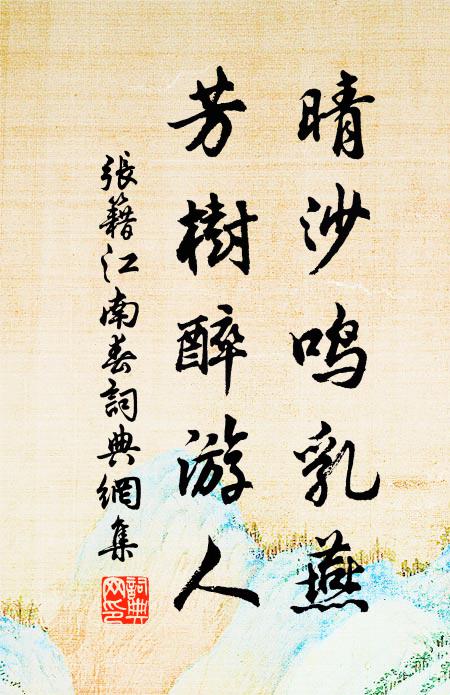 晴沙鸣乳燕
芳樹醉游人
張籍江南春詞典網集
詞典网印